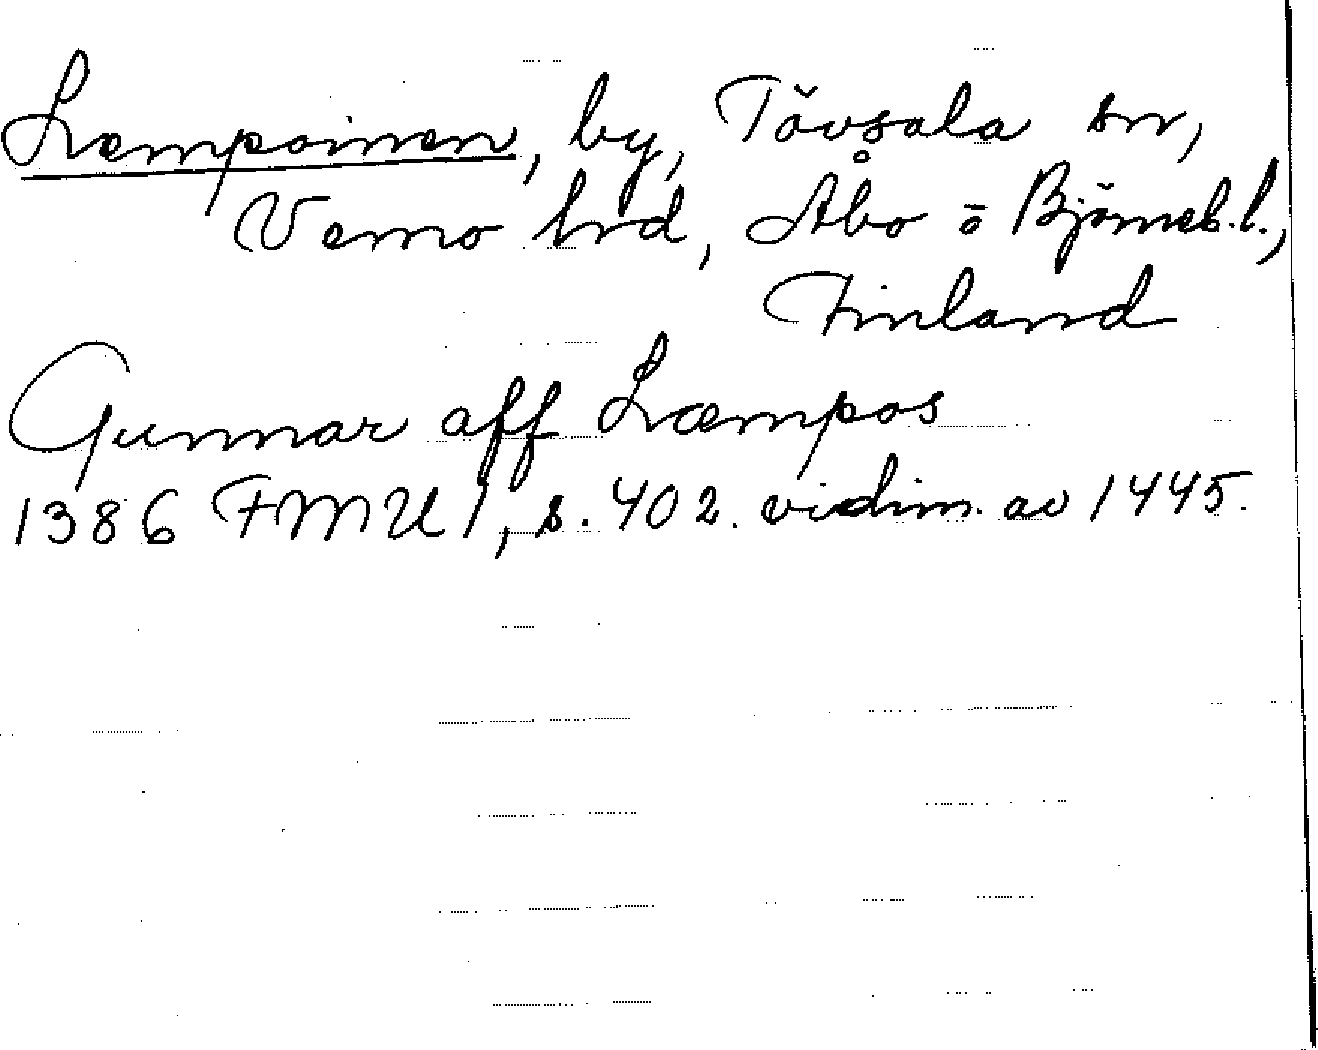 Lempoinen, by, Tövsala sn,
Vemo hrd, Åbo o Björneb.l.,
Finland
Gunnar aff Læmpos
1386 FMU 1, s. 402. vidim. av 1445.